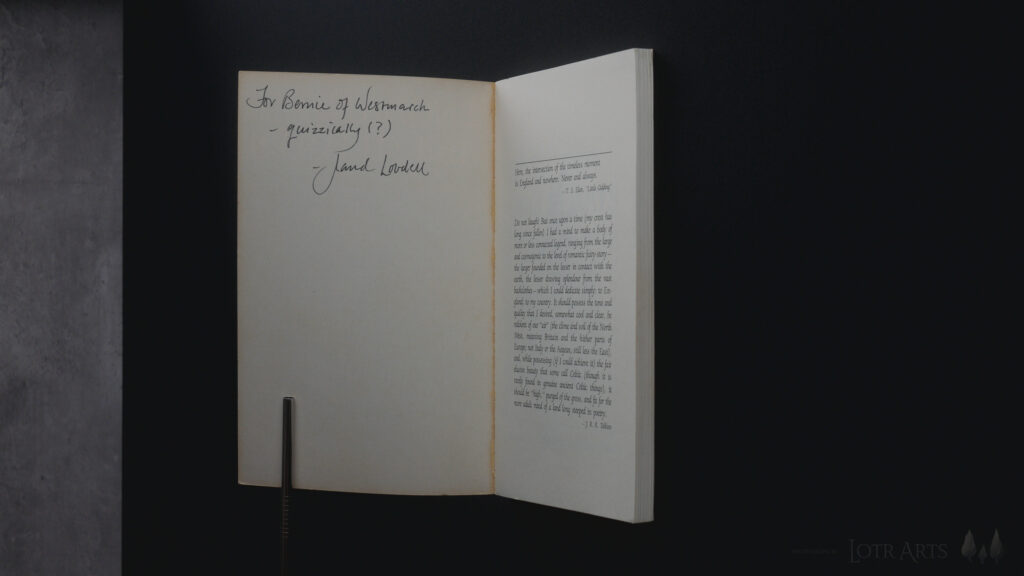 For Bernie of Westmarch
- quizzically (?)
- Jared Lobdell
Here, the intersection of the timeless moment
is England and nowhere. Never and always.
- T. S. Eliot, "Little Gidding"
Do not laugh! But once upon a time (my crest has
long since fallen) I had a mind to make a body of
more or less connected legend, ranging from the large
and cosmogonic to the level of romantic fairy-story—
the larger founded on the lesser in contact with the
earth, the lesser drawing splendour from the vast
backcloths—which I could dedicate simply: to En-
gland; to my country. It should possess the tone and
quality that I desired, somewhat cool and clear, be
redolent of our "air" (the clime and soil of the North
West, meaning Britain and the hither parts of
Europe; not Italy or the Aegean, still less the East),
and, while possessing (if I could achieve it) the fair
elusive beauty that some call Celtic (though it is
rarely found in genuine ancient Celtic things), it
should be "high," purged of the gross, and fit for the
more adult mind of a land long steeped in poetry.
- J. R. R. Tolkien
LOTR ARTS